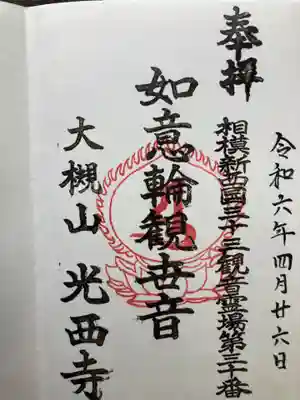 令和六年四月廿六日
奉拝
相模新西國三十三観音霊場第三十番
如意輪観世音
大槻山 光西寺